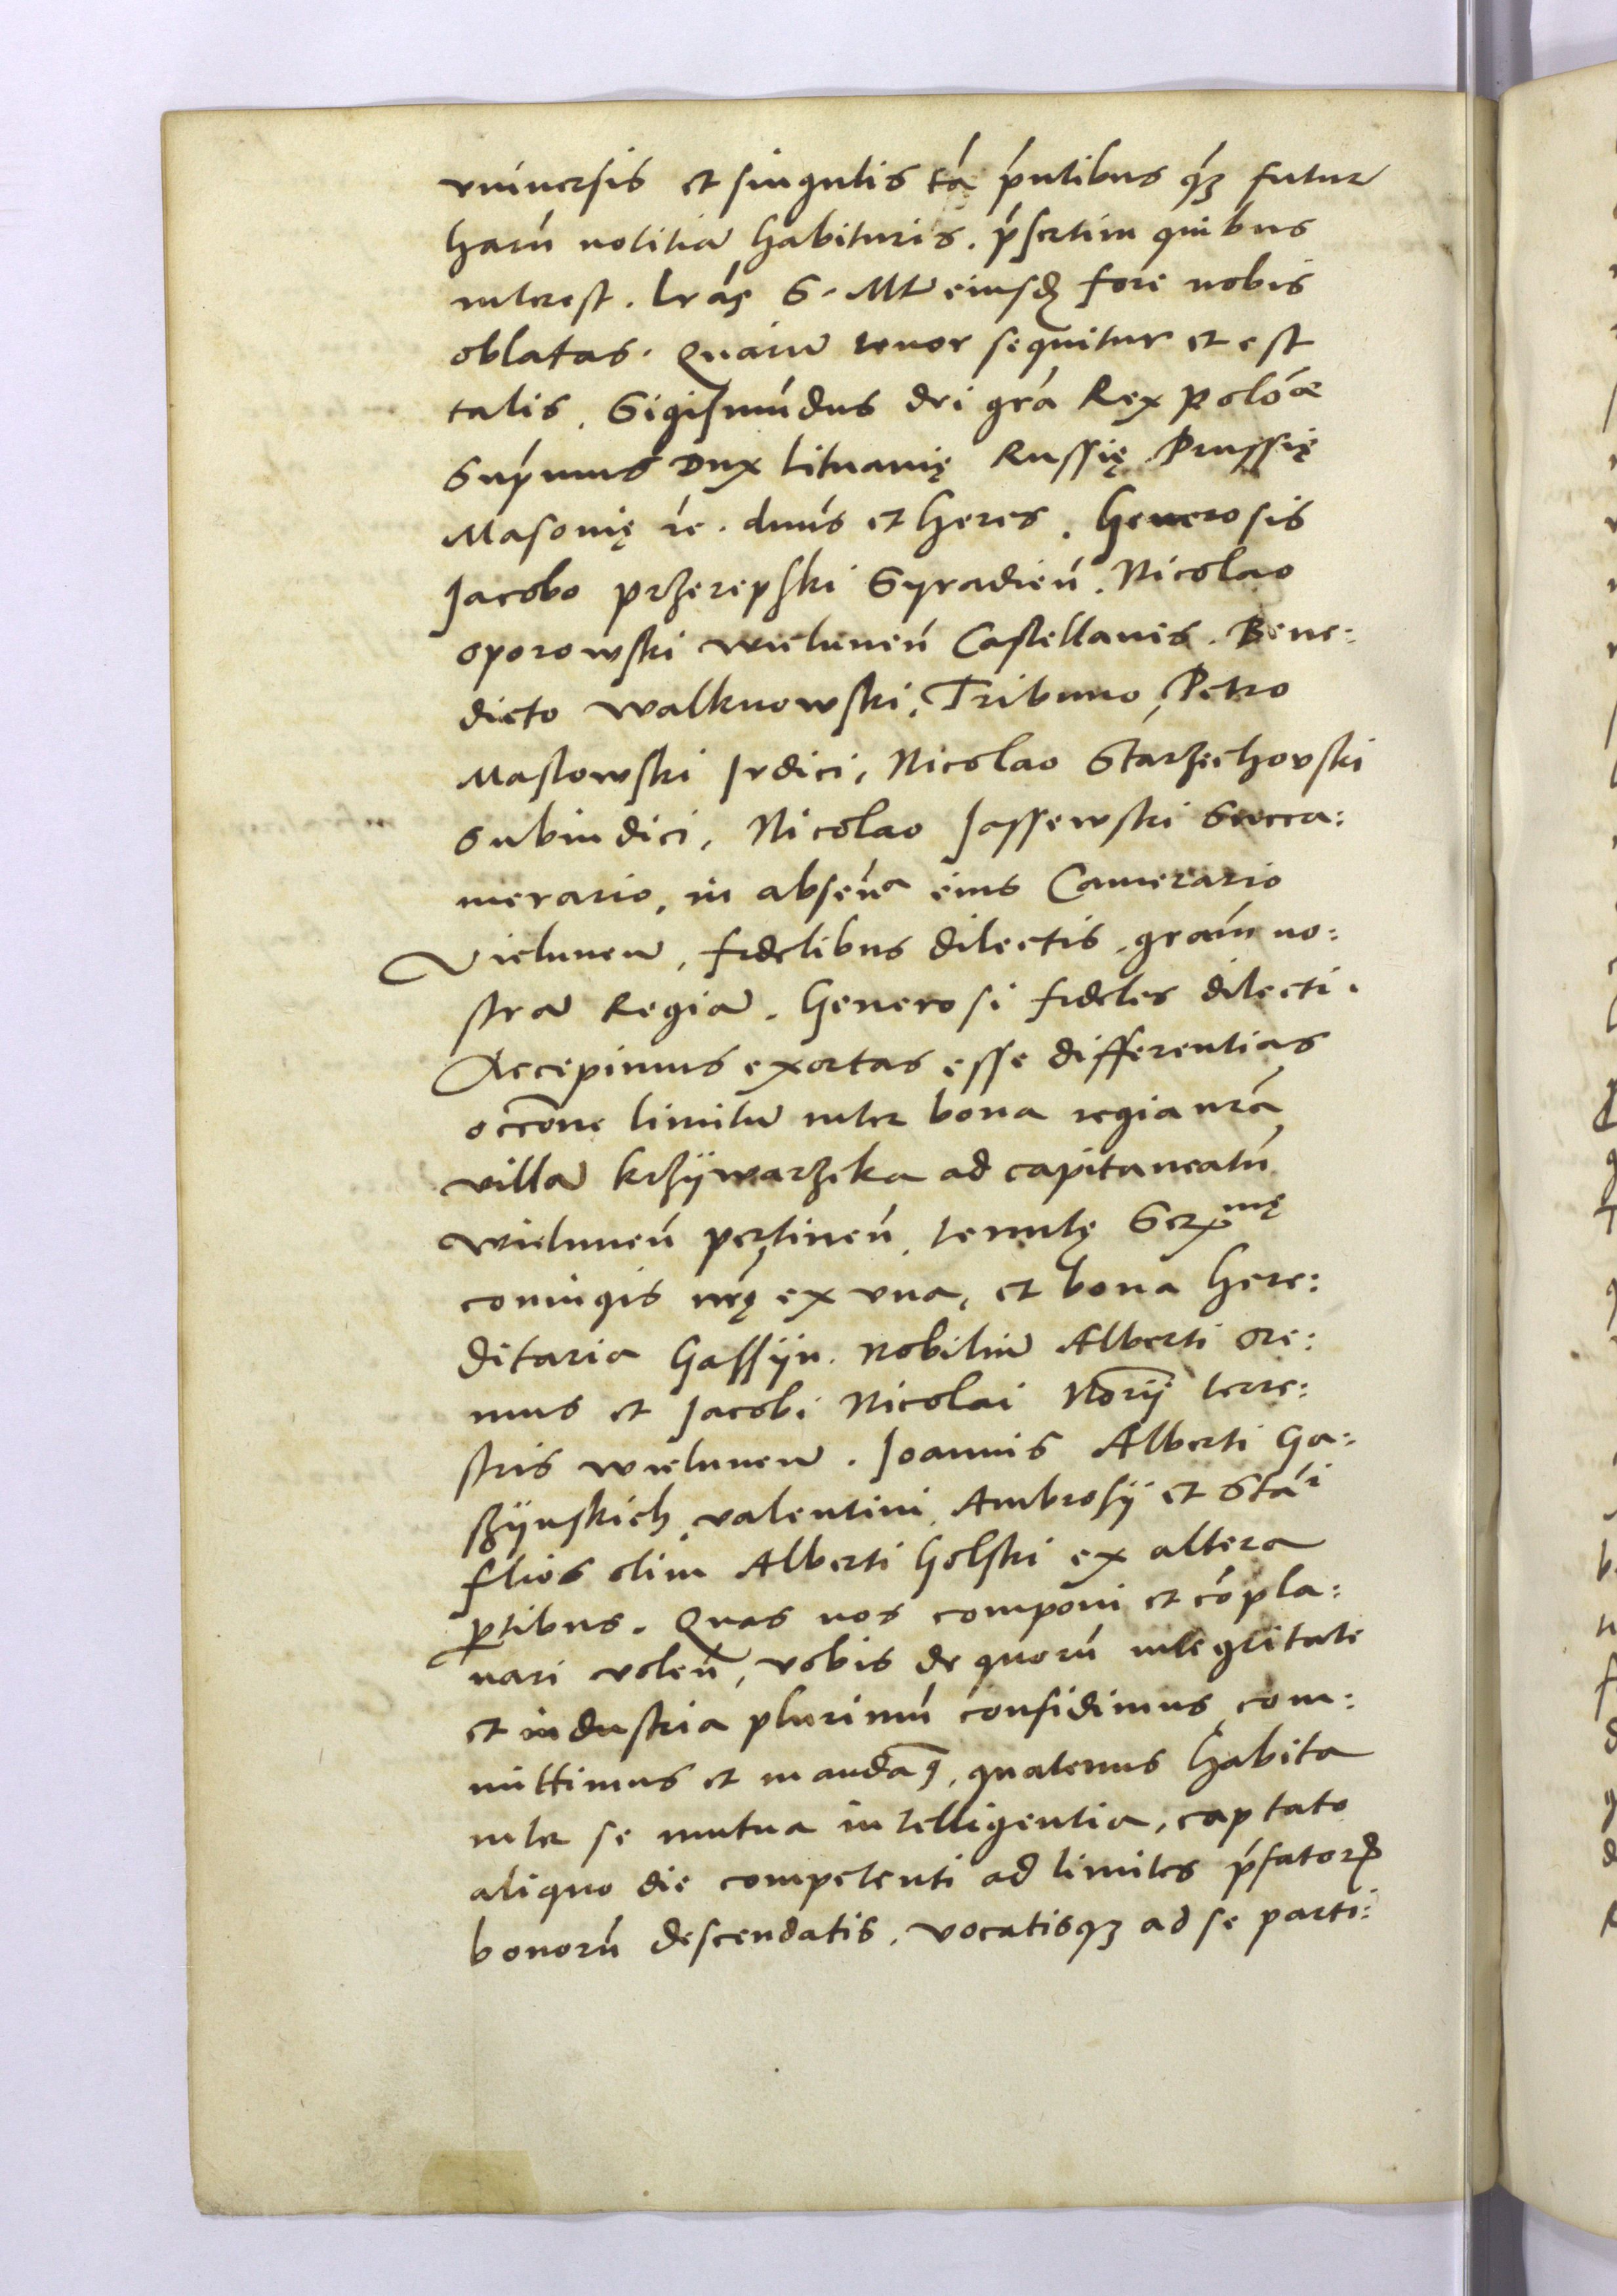 vniuersis et singulis tá pńtibus q́ȝ futur
harú notitiā habituris. ṕsertim quibus
interest. Lrás S. Mtū eiusdȝ fore nobis
oblatas. Quarū tenor sequitur et est
talis. Sigismúdus dei grá Rex Polóᵉ
Suṕmus Dux Lituanię Russię Prussię
Masouię ꝛc. dnús et heres. Generosis
Jacobo przerepski Syradień. Nicolao
oporowski wieluneń Castellanis. Bene:
dicto walknowski, Tribuno, Petro
Maslowski Jvdici, Nicolao Starzechovski
Subiudici, Nicolao Jassewski Succa:
merario, in abseńᵃ eius Camerario
Vielunen̄, fidelibus dilectis, gram̄ no:
strā Regiā. Generosi fideles dilecti.
Accepimus exortas esse differentias
occōne limitū inter bona regia nrá
villā krzÿwarzeka ad capitaneatú
wieluneń pertineń, tenutę Serᵐᵉ
coniugis nrę́ ex vna, et bona here:
ditaria Gassÿn. Nobiliū Alberti Ore:
mus et Jacobi Nicolai Norÿ terre:
stris wielunen̄. Joannis Alberti Ga:
szÿnskich, valentini, Ambrosÿ et Stáⁱ
filios olim Alberti Golski ex altera
ꝑtibus. Quas nos componi et cópla:
nari voleń, vobis de quorú integritate
et industria plurimú confidimus, com:
mittimus et mandaꝰ, quatenus habita
inter se mutua intelligentia, captato
aliquo die competenti ad limites ṕfatorꝝ
bonorú descendatis, vocatisqȝ ad se parti: